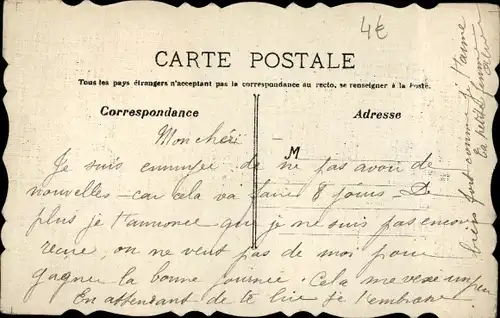 4€
CARTE POSTALE
Tous les pays étrangers n'acceptant pas la correspondance au recto, se renseigner à la Poste.
Correspondance
Adresse
Mon chéri
M
Je suis ennuyée de ne pas avoir de
nouvelles - car cela va faire 8 jours - De
plus je t'annonce que je ne suis pas encore
reçue, on ne veut pas de moi pour
gagner la bonne journée. Cela me vexe un peu
En attendant de te lire je t'embrasse
bien fort comme je t'aime
ta petite femme